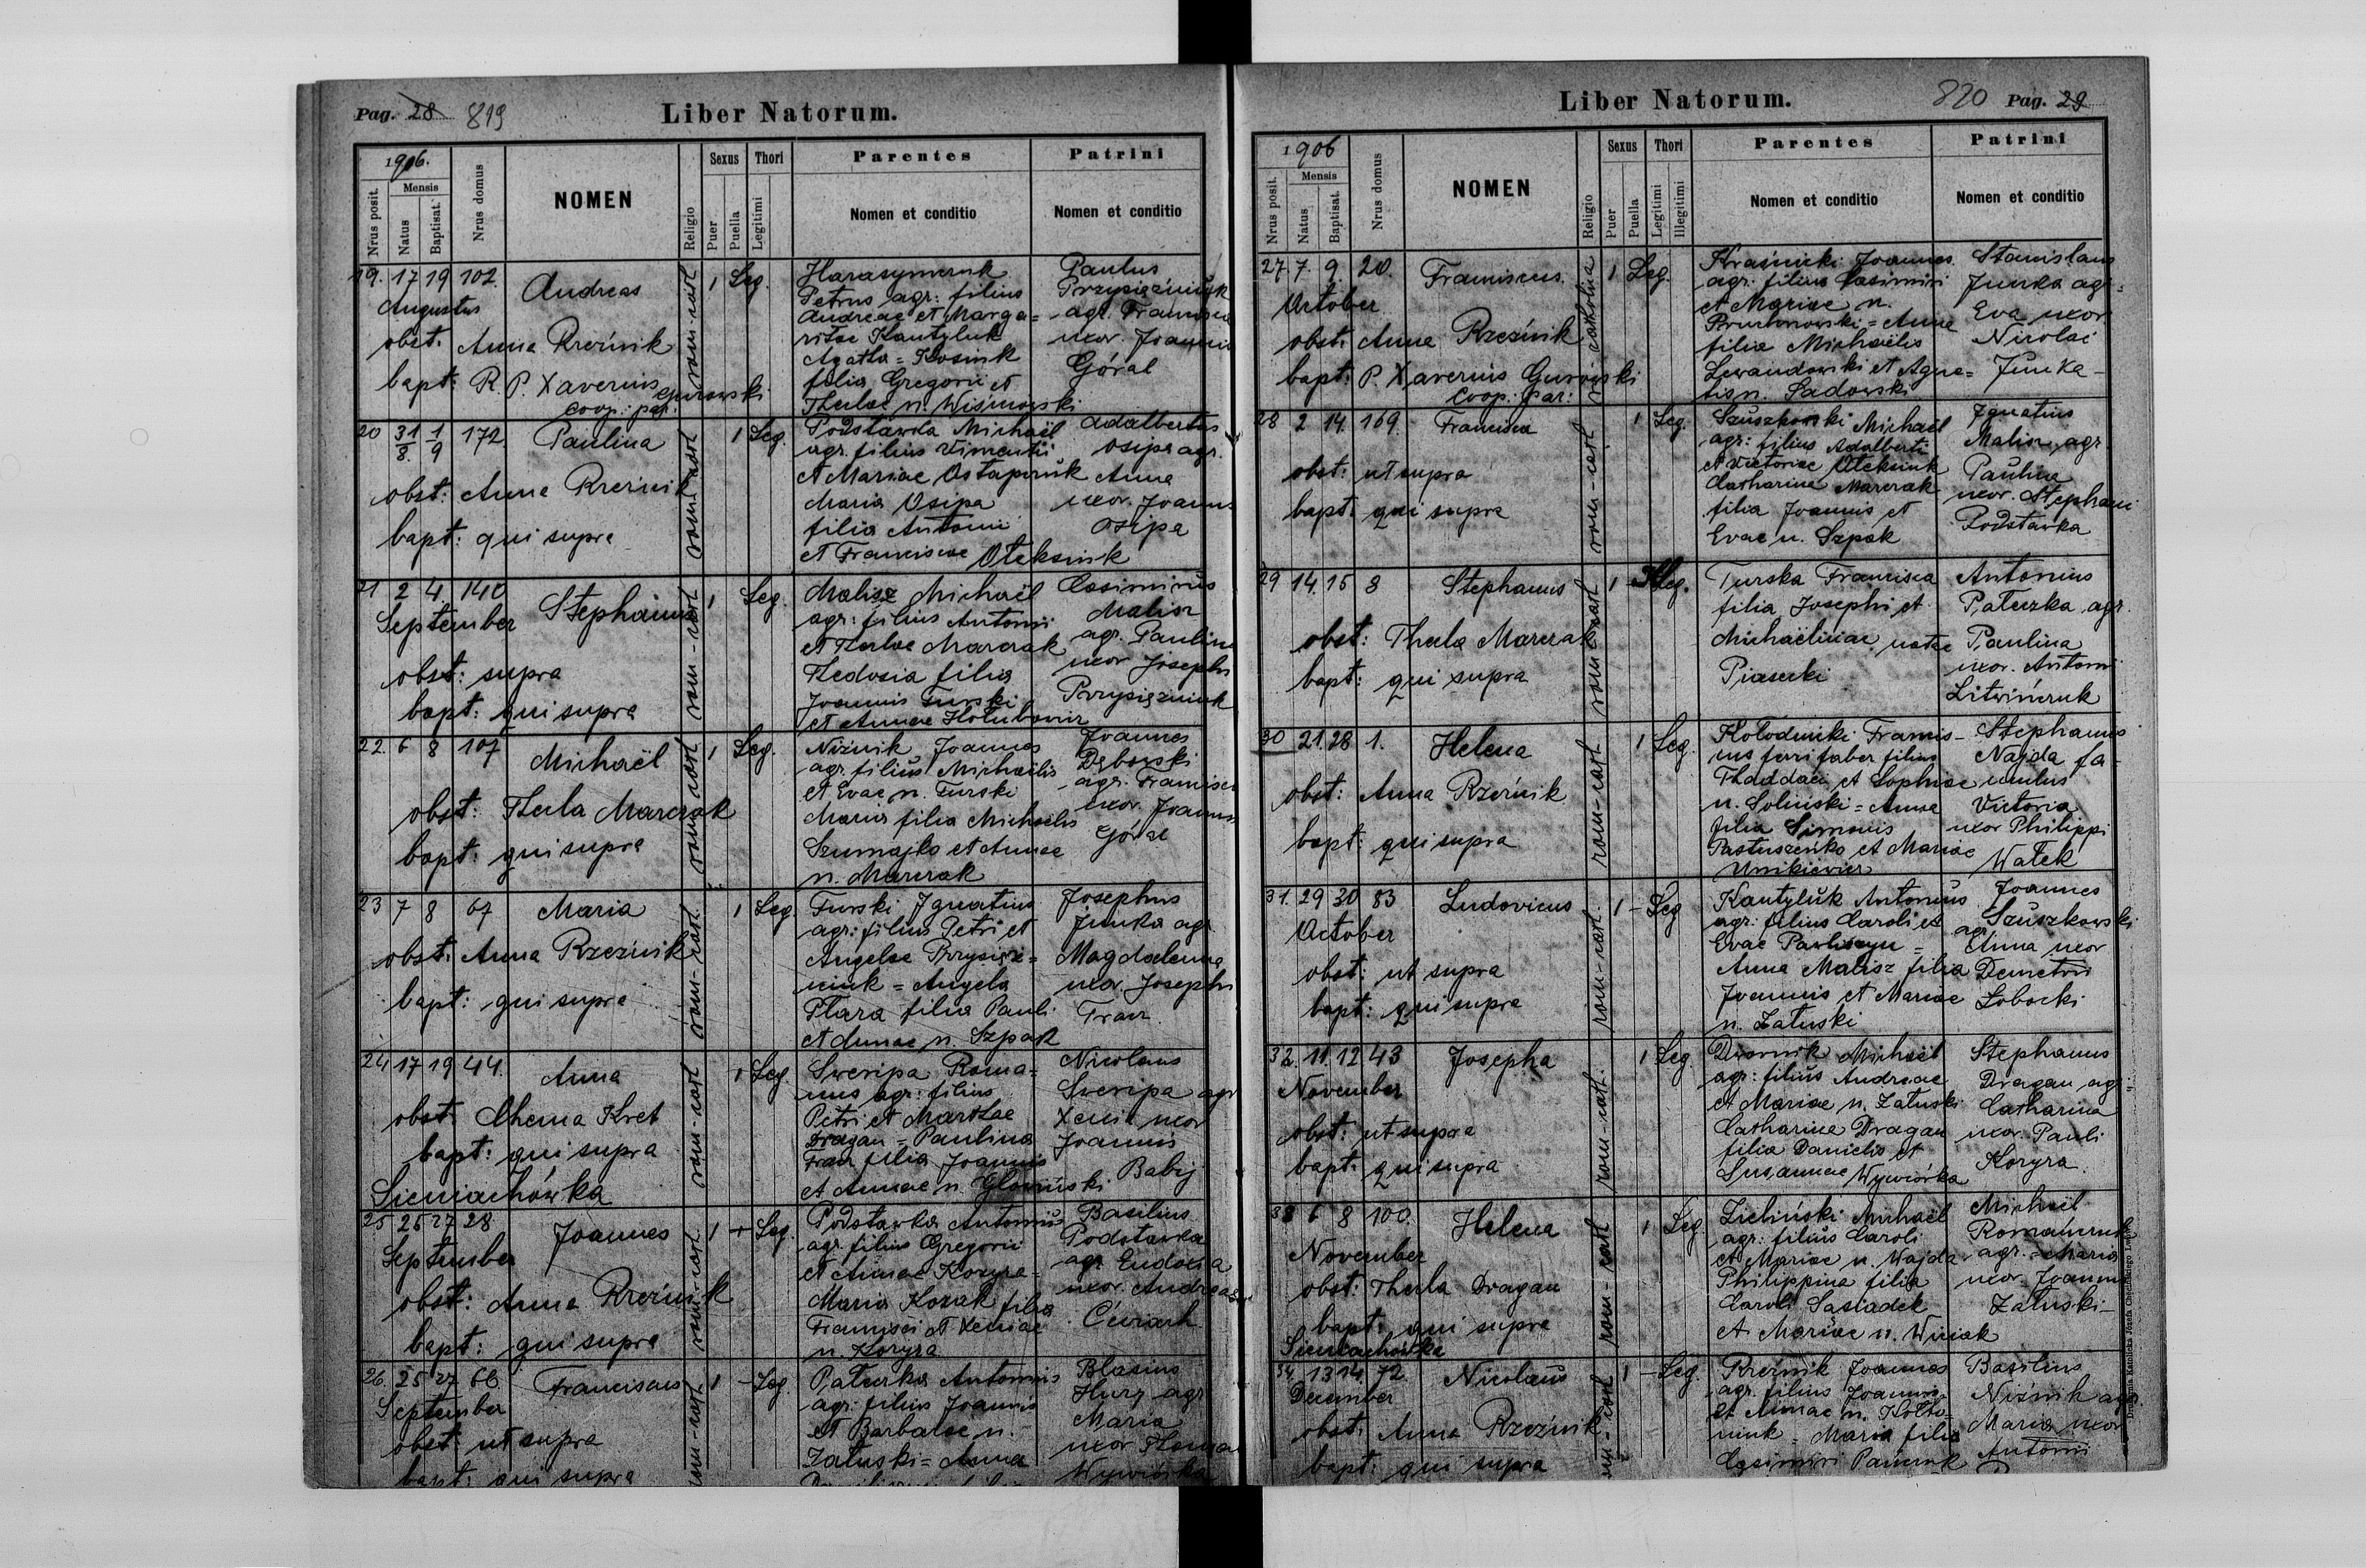 Pag. 28 819
Liber Natorum.
1906.
Nrus posit.
Mensis
Natus
Baptisat.
Nrus domus
NOMEN
Religio
Sexus
Puer
Puella
Thori
Legitimi
Parentes
Nomen et conditio
Patrini
Nomen et conditio
19. 17 19 102. Andreas
Augustus
obst. Anna Rzeźnik
bapt: R. P. Xaverius Gurowski
coop: par.
rom-cat
1 Leg.
Harasymczuk
Petrus agr: filius
Andreae et Marga=
ritae Kantyluk
Agatha = Kosiuk
filia Gregorii et
Theclae n. Wiśniowski
Paulus
Przysiężniuk
agr. Francisca
uxor. Joannis
Góral
20 31/8. 1/9 172 Paulina
obst: Anna Rzeźnik
bapt: qui supra
rom-cat
1 Leg.
Podstawka Michaël
agr. filius Vincentii
et Mariae Ostapczuk
Maria Osipa
filia Antonii
et Franciscae Oleksiuk
Adalbertus
Osipa agr.
Anna
uxor. Joannis
Osipa
21 2 4. 140 Stephanus
September
obst: supra
bapt: qui supra
rom-cat
1 Leg.
Malisz Michaël
agr: filius Antonii
et Theclae Marczak
Hedvia filia
Joannis Turski
et Annae Hołubowicz
Casimirus
Malisz
agr. Paulina
uxor Josephi
Przysiężniuk
22. 6 8 107 Michaël
obst: Thecla Marczak
bapt: qui supra
rom-cat
1 Leg.
Niźnik Joannes
agr. filius Michaëlis
et Evae n. Turski
Maria filia Michaëlis
Szumajko et Annae
n. Marczak
Joannes
Dębowski
agr. Francisca
uxor. Joannis
Góral
23 7 8 67 Maria
obst: Anna Rzeźnik
bapt: qui supra
rom-cat.
1 Leg.
Turski Ignatius
agr: filius Petri et
Angelae Przysięż=
niuk = Angela
Płara filia Pauli
et Annae n. Szpak
Josephus
Junka agr.
Magdalena
uxor. Josephi
Tracz
24 17 19 44. Anna
obst. Chema Kret
bapt: qui supra
Sieniachówka
rom-cat
1 Leg.
Sweripa Roma=
nus agr: filius
Petri et Marthae
Dragan = Paulina
Tracz filia Joannis
et Annae n. Głowiński
Nicolaus
Sweripa agr
Xenia uxor
Joannis
Babij
25 25 27 28 Joannes
September
obst: Anna Rzeźnik
bapt: qui supra
rom-cat
1 + Leg.
Podstawka Antonius
agr. filius Gregorii
et Annae Kozyra=
Maria Kozak filia
Francisci et Xeniae
n. Kozyra
Basilius
Podstawka
agr. Eudoxia
uxor. Andreae
26. 25 27 66 Franciscus
September
obst: ut supra
bapt: qui supra
rom-cat
1 - Leg.
Pałeczka Antonius
agr: filius Joannis
et Barbarae n.
Załuski = Anna
Blasius
agr
Maria
uxor Thomae
Wywiórka
Liber Natorum.
820 Pag. 29
1906
Nrus posit.
Mensis
Natus
Baptisat.
Nrus domus
NOMEN
Religio
Sexus
Puer
Puella
Thori
Legitimi
Illegitimi
Parentes
Nomen et conditio
Patrini
Nomen et conditio
27. 7. 9. 20. Franciscus.
October
obst: Anna Rzeźnik
bapt: P. Xaverius Gurowski
coop: par:
catholica
1 Leg.
Kraśnicki Joannes
agr. filius Casimiri
et Mariae n.
= Anna
filia Michaëlis
Lewandowski et Agne=
tis n. Sadowski
Stanislaus
Junka agr=
Eva uxor
Nicolai
Junka-
28 2 14. 169. Francisca
obst: ut supra
bapt. qui supra
rom-cat
1 Leg.
Szuszkowski Michaël
agr: filius Adalberti
et Victoriae Oleksiuk
Catharina Marczak
filia Joannis et
Evae n. Szpak
Ignatius
Malisz, agr
Paulina
uxor. Stephani
Podstawka
29 14. 15 8 Stephanus
obst: Thecla Marczak
bapt: qui supra
rom-cat
1 Illeg.
Turska Francisca
filia Josephi et
Michaëlinae natae
Piasecki
Antonius
Pałeczka agr.
Paulina
uxor. Antonii
Litwińczuk
30 21. 28 1. Helena
obst: Anna Rzeźnik
bapt: qui supra
rom-cat
1 Leg.
Kołodnicki Francis-
cus ferri faber filius
Thaddaei et Sophiae
n. Soliński = Anna
filia Simonis
Pastuszeńko et Mariae
Unikiewicz
Stephanus
Najda fa-
mulus
Victoria
uxor Philippi
Wałek
31. 29 30 83 Ludovicus
October
obst: ut supra
bapt: qui supra
rom-cat.
1 - Leg
Kantyluk Antonius
agr: filius Caroli et
Evae Pawliszyn =
Anna Malisz filia
Joannis et Mariae
n. Załuski
Joannes
Szuszkowski
agr.
Anna uxor
Demetrii
Sobocki
32. 11. 12 43 Josepha
November
obst: ut supra
bapt: qui supra
rom-cat.
1 Leg.
Dwornik Michaël
agr: filius Andreae
et Mariae n. Załuski
Catharina Dragan
filia Danielis et
Susannae Wywiórka
Stephanus
Dragan agr
Catharina
uxor. Pauli
Kozyra.
33 6 8 100. Helena
November
obst: Thecla Dragan
bapt. qui supra
Sieniachówka
rom-cat
1 Leg.
Zieliński Michaël
agr: filius Caroli
et Mariae n. Wajda
Philippina filia
Caroli Sasiadek
et Mariae n. Wiciak
Michaël
Romańczuk
agr. = Maria
uxor. Joannis
Załuski-
34. 13 14. 72. Nicolaus
December
obst. Anna Rzeźnik
bapt: qui supra
rom-cat
1 - Leg.
Rzeźnik Joannes
agr. filius Joannis
et Annae n. Kołto=
niuk = Maria filia
Casimiri Pańczuk
Basilius
Niźnik agr
Maria uxor
Antonii